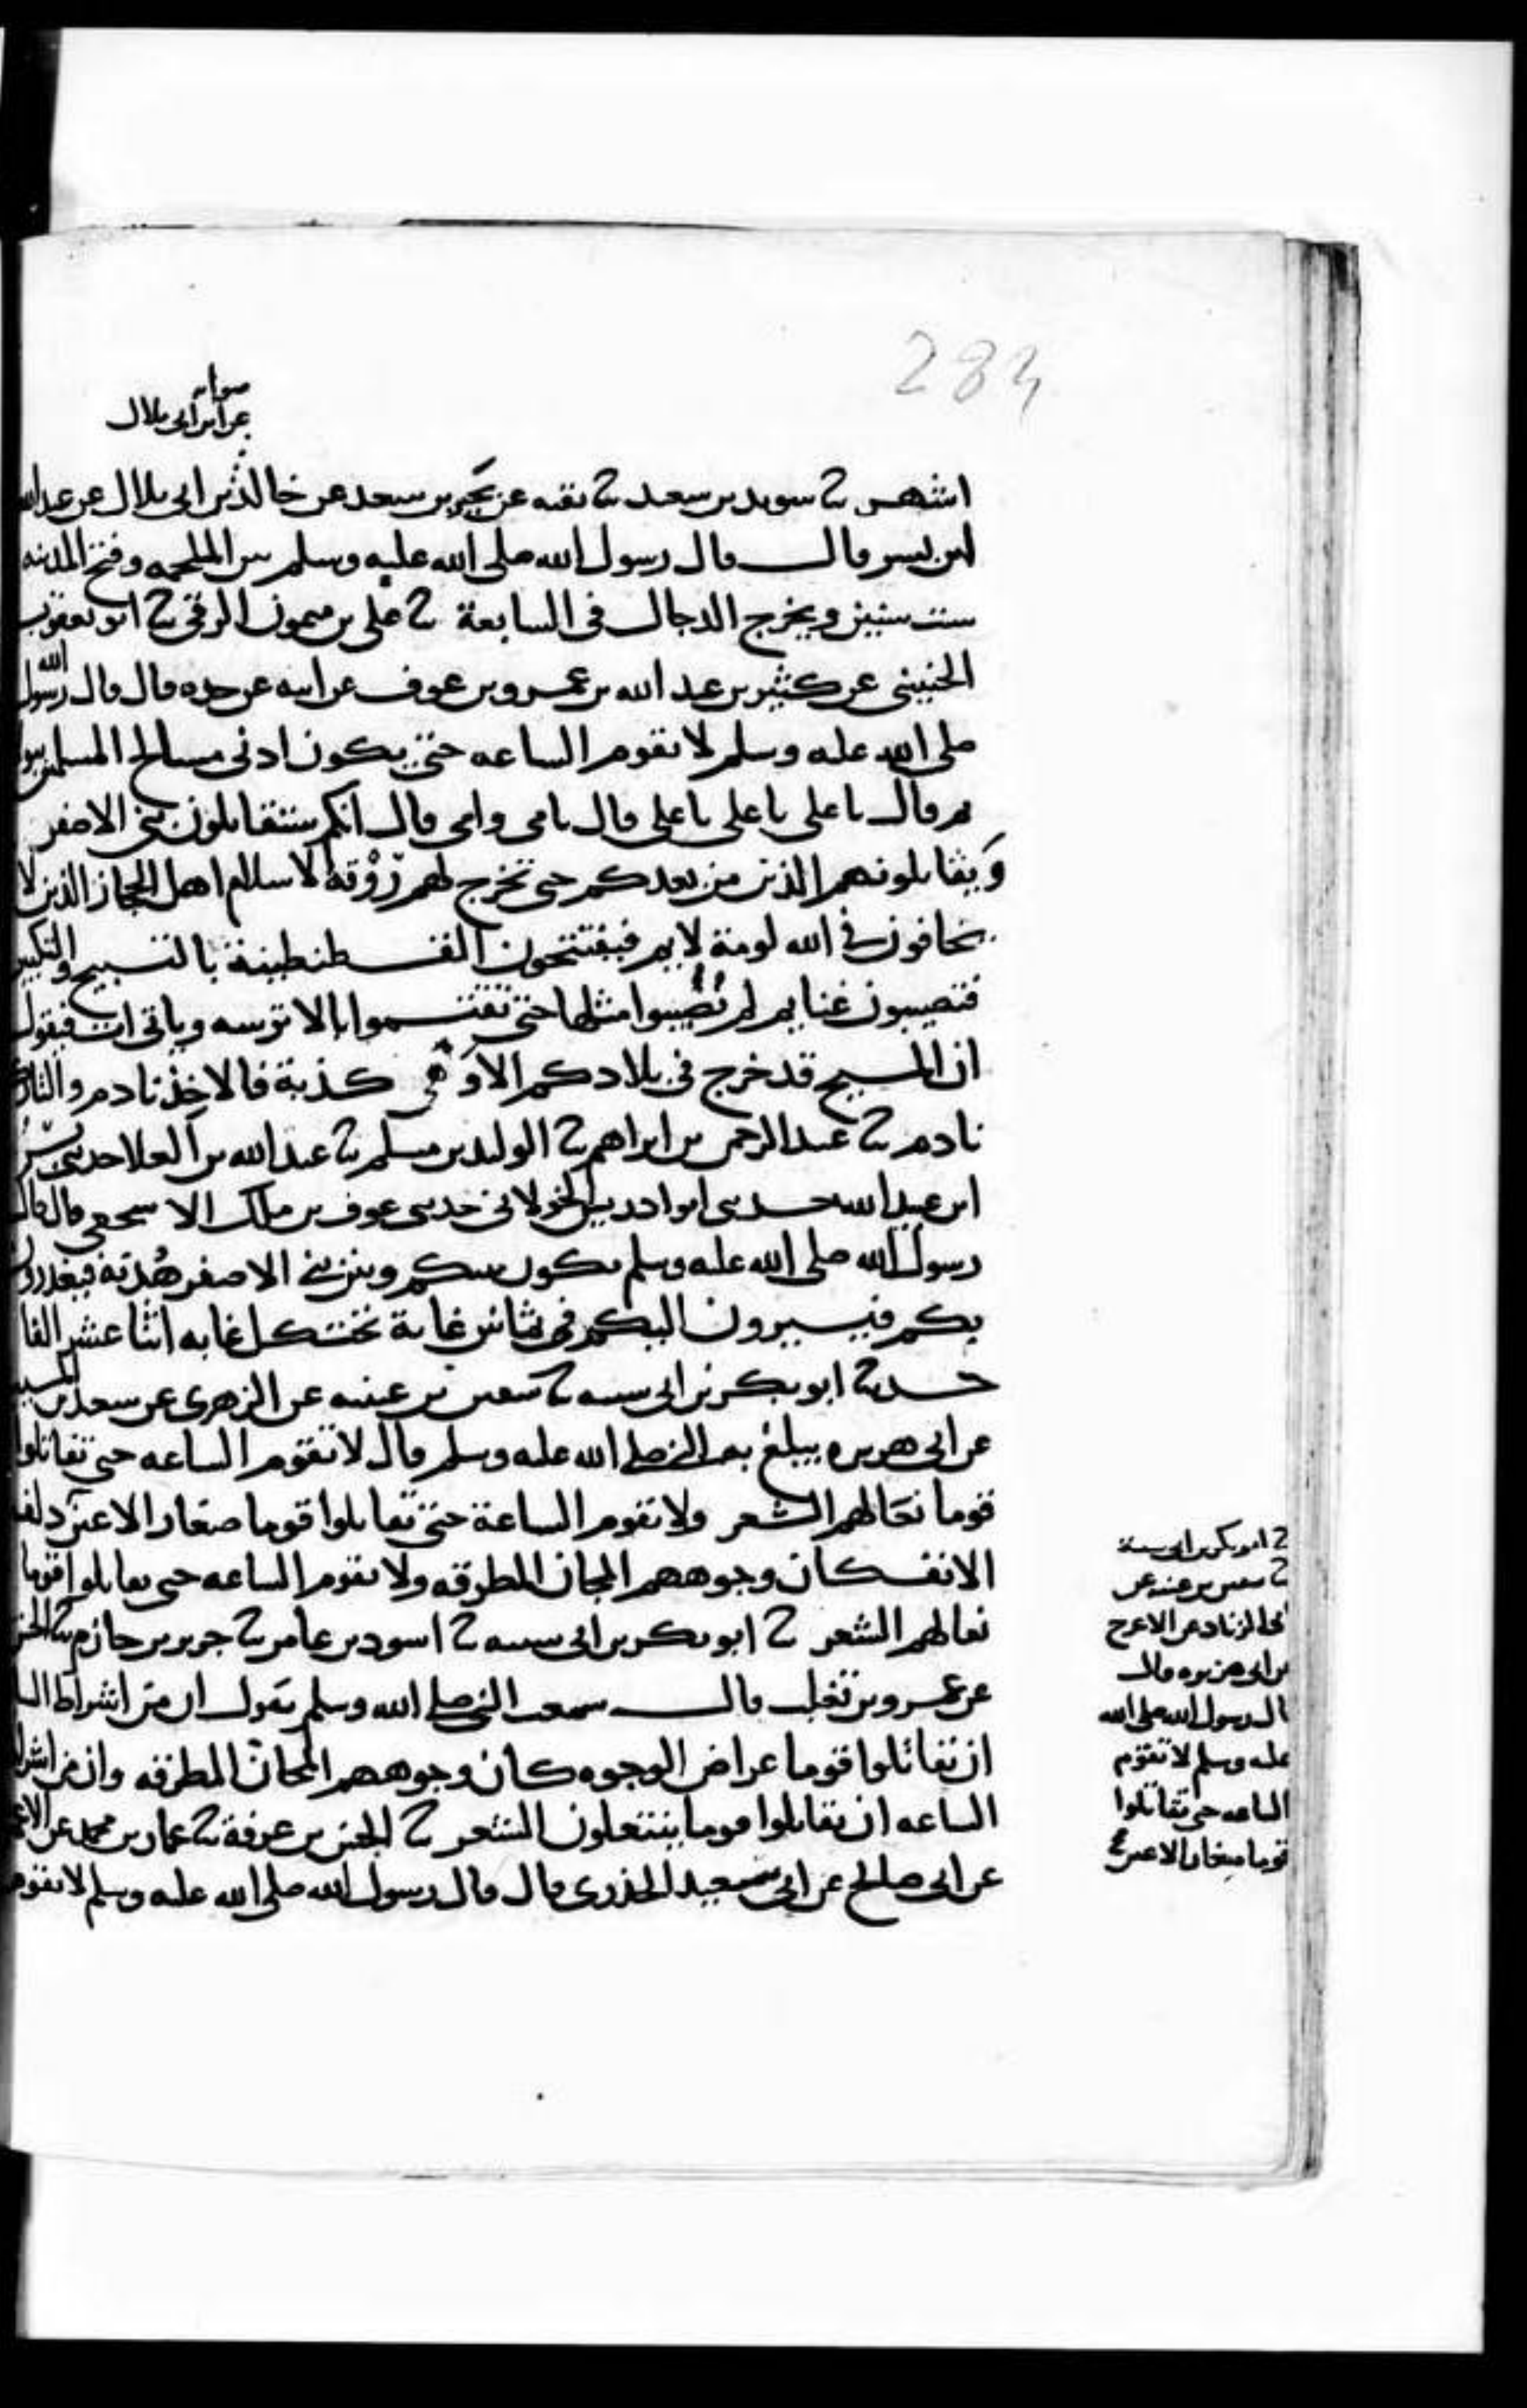 284
صوابه
عن ابن ابى بلال
اشهر ثنا سويد بن سعيد ثنا بقيه عن بَحِير بن سعد عن خالد بن ابى بلال عن عبد الله
ابن بسر قال قال رسول الله صلى الله عليه وسلم بين الملحمه وفتح المدينه
ست سنين ويخرج الدجال فى السابعة ثنا على بن ميمون الرقى ثنا ابو يعقوب
الحنينى عن كثير بن عبد الله بن عمرو بن عوف عن ابيه عن جده قال قال رسول الله
صلى الله عليه وسلم لا تقوم الساعه حتى يكون ادنى مسالح المسلمين
ثم قال يا على يا على يا على قال بابى وامى قال انكم ستقاتلون بنى الاصفر
وَيقاتلونهم الذين من بعدكم حتى تخرج لهم رُوْقة الاسلام اهل الحجاز الذين لا
يخافون فى الله لومة لايم فيفتتحون القسطنطينة بالتسبيح والتكبير
فتصيبون غنايم لم تُصيبوا مثلها حتى تقتسموا بالاترسه وياتى ات فيقول
ان المسيح قد خرج فى بلادكم الا وَهى كذبة فالاخِذ نادم والتارك
نادم ثنا عبد الرحمن بن ابراهيم ثنا الوليد بن مسلم ثنا عبد الله بن العلا حدثنى بُسْر
ابن عبيد الله حدثنى ابو ادريس الخولانى حدثنى عوف بن ملك الاشجعى قال قال
رسول الله صلى الله عليه وسلم تكون بينكم وبين بنى الاصفر هُدنة فيغدرون
بكم فيسيرون اليكم فى ثمانين غاية تحت كل غايه اثنا عشر الفا
حدثنا ابو بكر بن ابى شيبه ثنا سفين بن عيينه عن الزهرى عن سعيد بن المسيب
عن ابى هريره يبلغ به النبى صلى الله عليه وسلم قال لا تقوم الساعه حتى تقاتلوا
قوما نعالهم الشعر ولا تقوم الساعة حتى تقاتلوا قوما صغار الاعين ذلف
الانف كان وجوههم المجان المطرقه ولا تقوم الساعه حتى تقاتلوا قوما
نعالهم الشعر ثنا ابو بكر بن ابى شيبه ثنا اسود بن عامر ثنا جرير بن حازم ثنا الحسن
عن عمرو بن تغلب قال سمعت النبى صلى الله وسلم يقول ان من اشراط
ان تقاتلوا قوما عراض الوجوه كان وجوههم المجانّ المطرقه وان من اشراط
الساعه ان تقاتلوا قوما ينتعلون الشعر ثنا الحسن بن عرفة ثنا عمار بن محمد عن الاعمش
عن ابى صالح عن ابى سعيد الخدرى قال قال رسول الله صلى الله عليه وسلم لا تقوم
ثنا ابو بكر بن ابى شيبة
ثنا سفين بن عيينه عن
ابى الزناد عن الاعرج
عن ابى هريره قال
قال رسول الله صلى الله
عليه وسلم لا تقوم
الساعه حتى تقاتلوا
قوما صغار الاعين